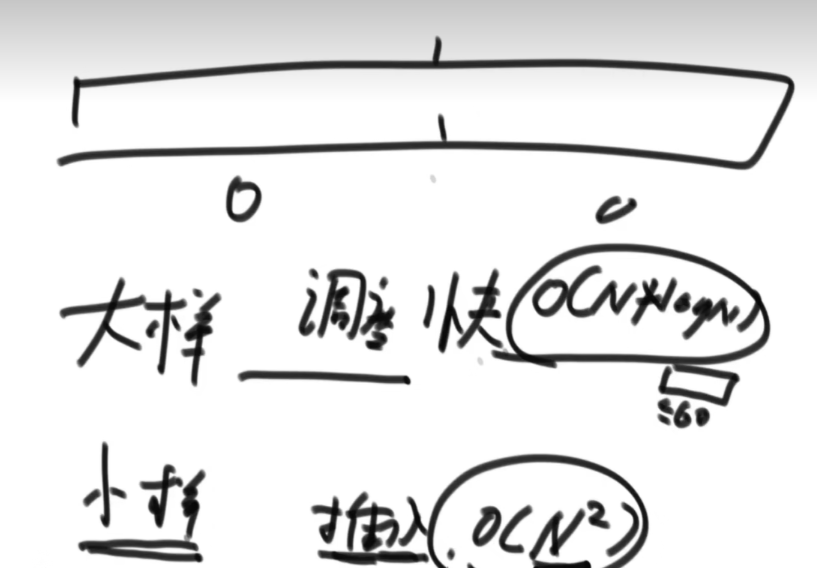 0 0
大样 调度 快 O(N*logN)
≤60
小样 插入 O(N²)